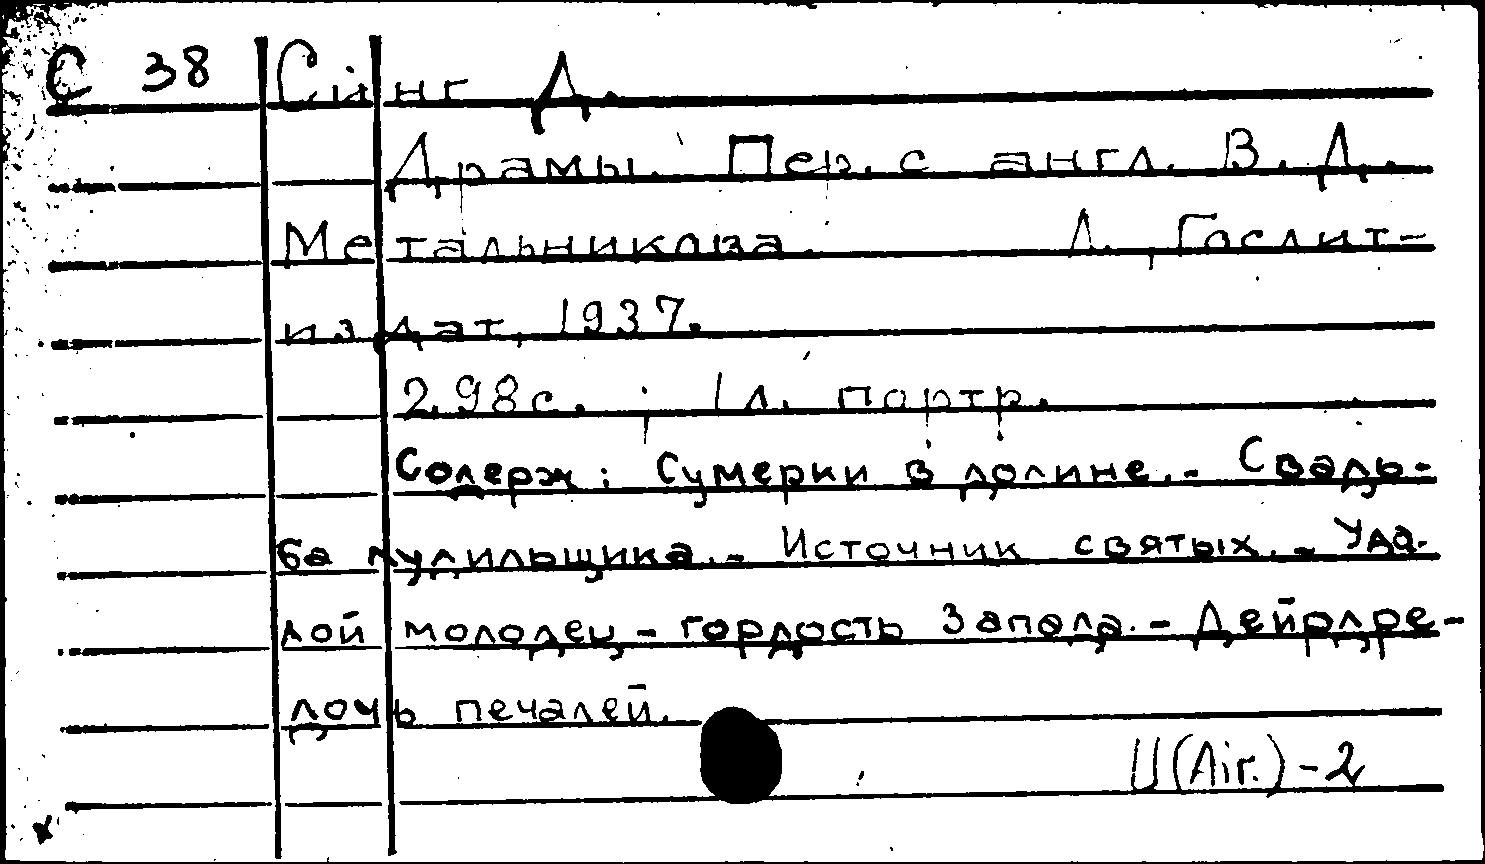 С 38 Сінг Д.
Драмы. Пер. с англ. В. Д.
Метальникова. Л., Гослит-
издат, 1937.
298с. ; 1 л. портр.
Содерж: Сумерки в долине. - Свадь-
ба лудильщика. - Источник святых. - Уда-
лой молодец - гордость Запада. - Дейрдре -
дочь печалей.
U(Air.)-2